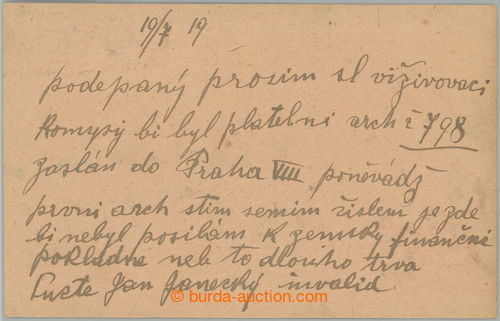 19/7 19
podepaný prosim sl viživovaci
Komysý bi byl platelni arch č 798
zaslán do Praha VIII poněvádž
prvni arch stim semim čislem je zde
bi nebyl posilám k zemsky finančné
pokladne neb to dlouho trva
Jan Janecký invalid
burda-auction.com